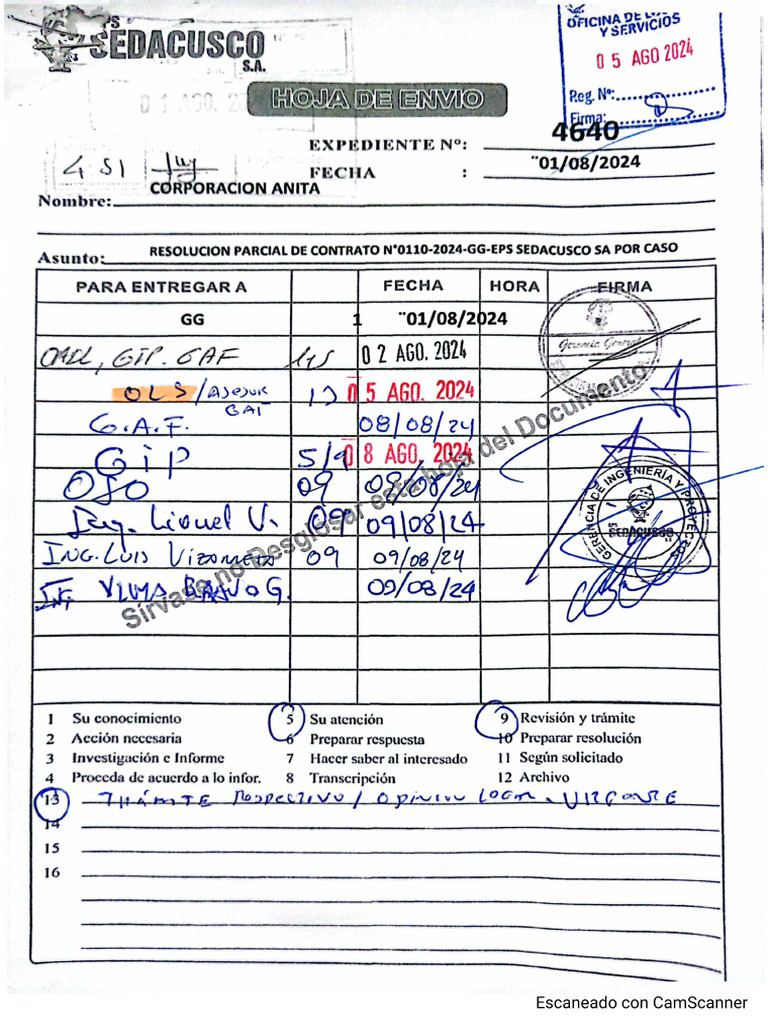 EPS
SEDACUSCO
S.A.
OFICINA DE LOG
Y SERVICIOS
05 AGO 2024
Reg. Nº:
Firma:
01 AGO. 2
HOJA DE ENVIO
EXPEDIENTE Nº: 4640
FECHA : ¨01/08/2024
451
Nombre: CORPORACION ANITA
Asunto: RESOLUCION PARCIAL DE CONTRATO N°0110-2024-GG-EPS SEDACUSCO SA POR CASO
PARA ENTREGAR A FECHA HORA FIRMA
GG 1 ¨01/08/2024
Gerencia General
GIP. GAF 02 AGO. 2024
OLS/ASESOR GAF 13 05 AGO. 2024
G.A.F. 08/08/24
GIP 5/9 08 AGO. 2024
09 09/08/24
Ing. Lionel V. 09 09/08/24
ING. LUIS 09 09/08/24
VILMA BRAVO G. 09/08/24
GERENCIA DE INGENIERIA Y PROYECTOS
SEDACUSCO
Sirvase no Desglosar esta hoja del Documento
1 Su conocimiento 5 Su atención 9 Revisión y trámite
2 Acción necesaria 6 Preparar respuesta 10 Preparar resolución
3 Investigación e Informe 7 Hacer saber al interesado 11 Según solicitado
4 Proceda de acuerdo a lo infor. 8 Transcripción 12 Archivo
13 TRÁMITE RESPECTIVO / OPINION LEGAL. URGENTE
14
15
16
Escaneado con CamScanner